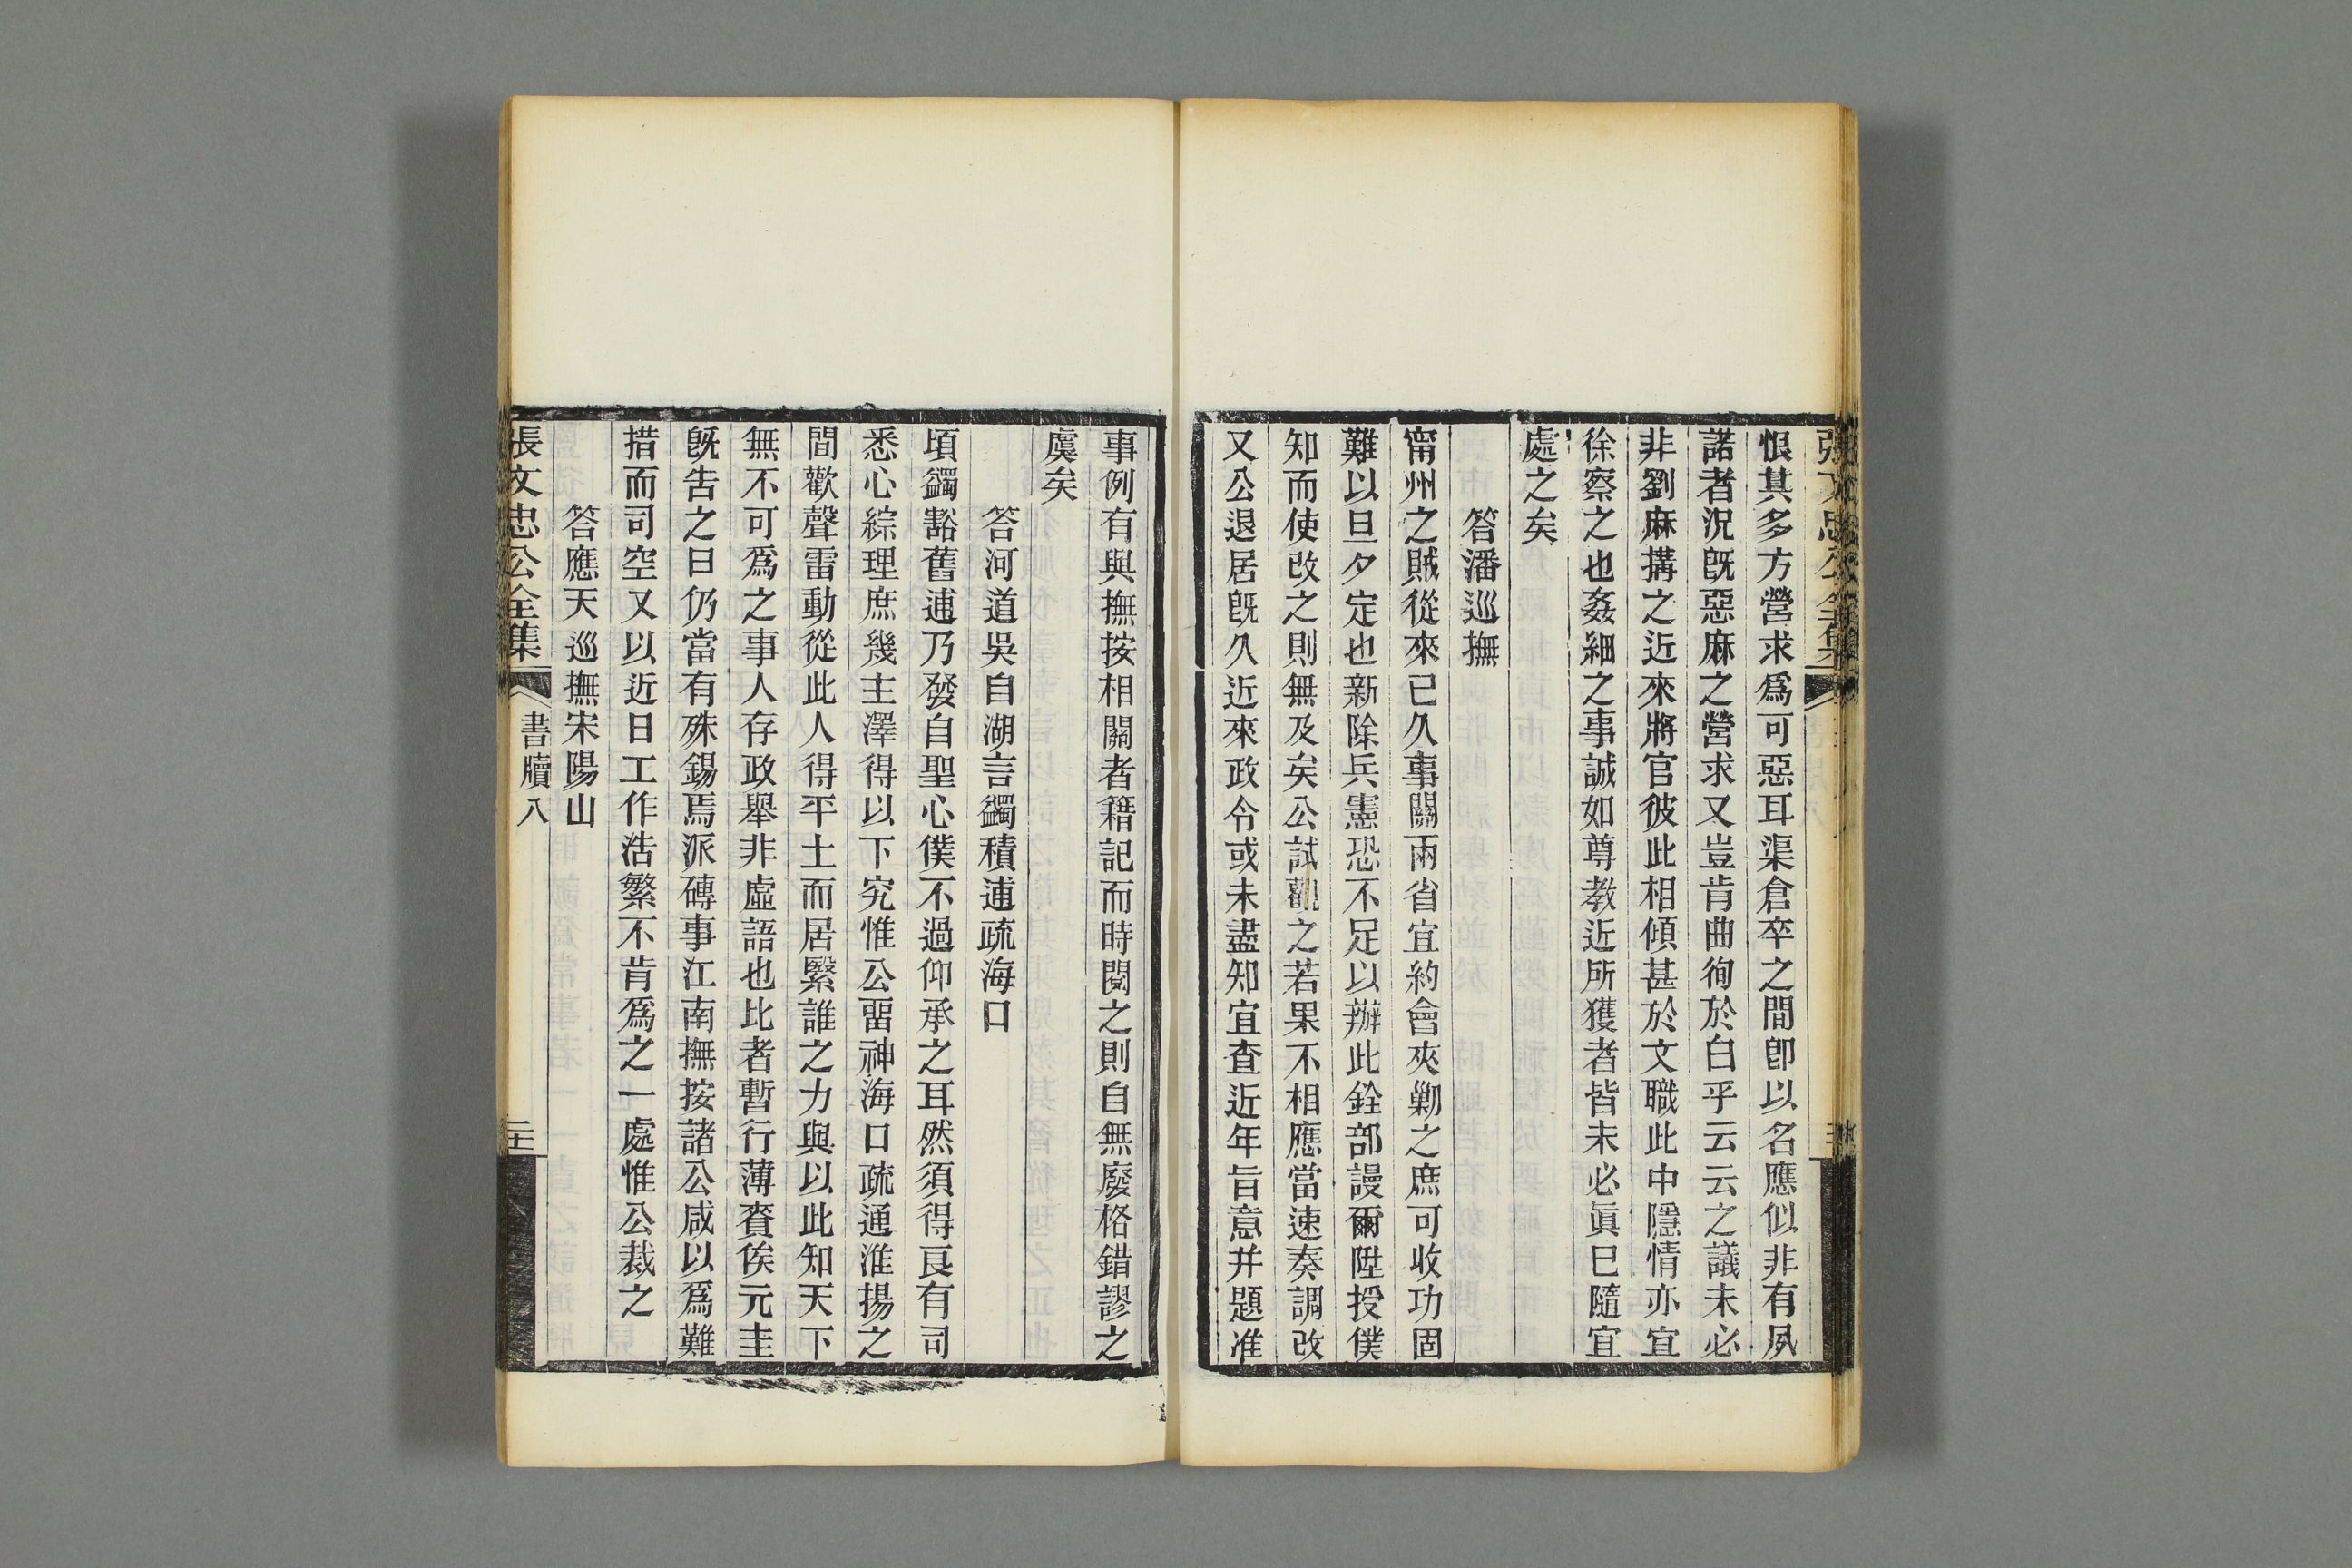 恨其多方營求爲可惡耳渠倉卒之間卽以名應似非有夙
諾者況旣惡麻之營求又豈肯曲徇於白乎云云之議未必
非劉麻搆之近來將官彼此相傾甚於文職此中隱情亦宜
徐察之也姦細之事誠如尊教近所獲者皆未必眞巳隨宜
處之矣
答潘巡撫
甯州之賊從來已久事關兩省宜約會夾勦之庶可收功固
難以旦夕定也新除兵憲恐不足以辦此銓部謾爾陞授僕
知而使改之則無及矣公試觀之若果不相應當速奏調改
又公退居旣久近來政令或未盡知宜查近年旨意并題准
事例有與撫按相關者籍記而時閱之則自無廢格錯謬之
虞矣
答河道吳自湖言蠲積逋疏海口
頃蠲豁舊逋乃發自聖心僕不過仰承之耳然須得良有司
悉心綜理庶幾主澤得以下究惟公畱神海口疏通淮揚之
間歡聲雷動從此人得平土而居繄誰之力與以此知天下
無不可爲之事人存政舉非虛語也比者暫行薄賚俟元圭
旣告之日仍當有殊錫焉派磚事江南撫按諸公咸以爲難
措而司空又以近日工作浩繁不肯爲之一處惟公裁之
答應天巡撫宋陽山
張文忠公全集 書牘八